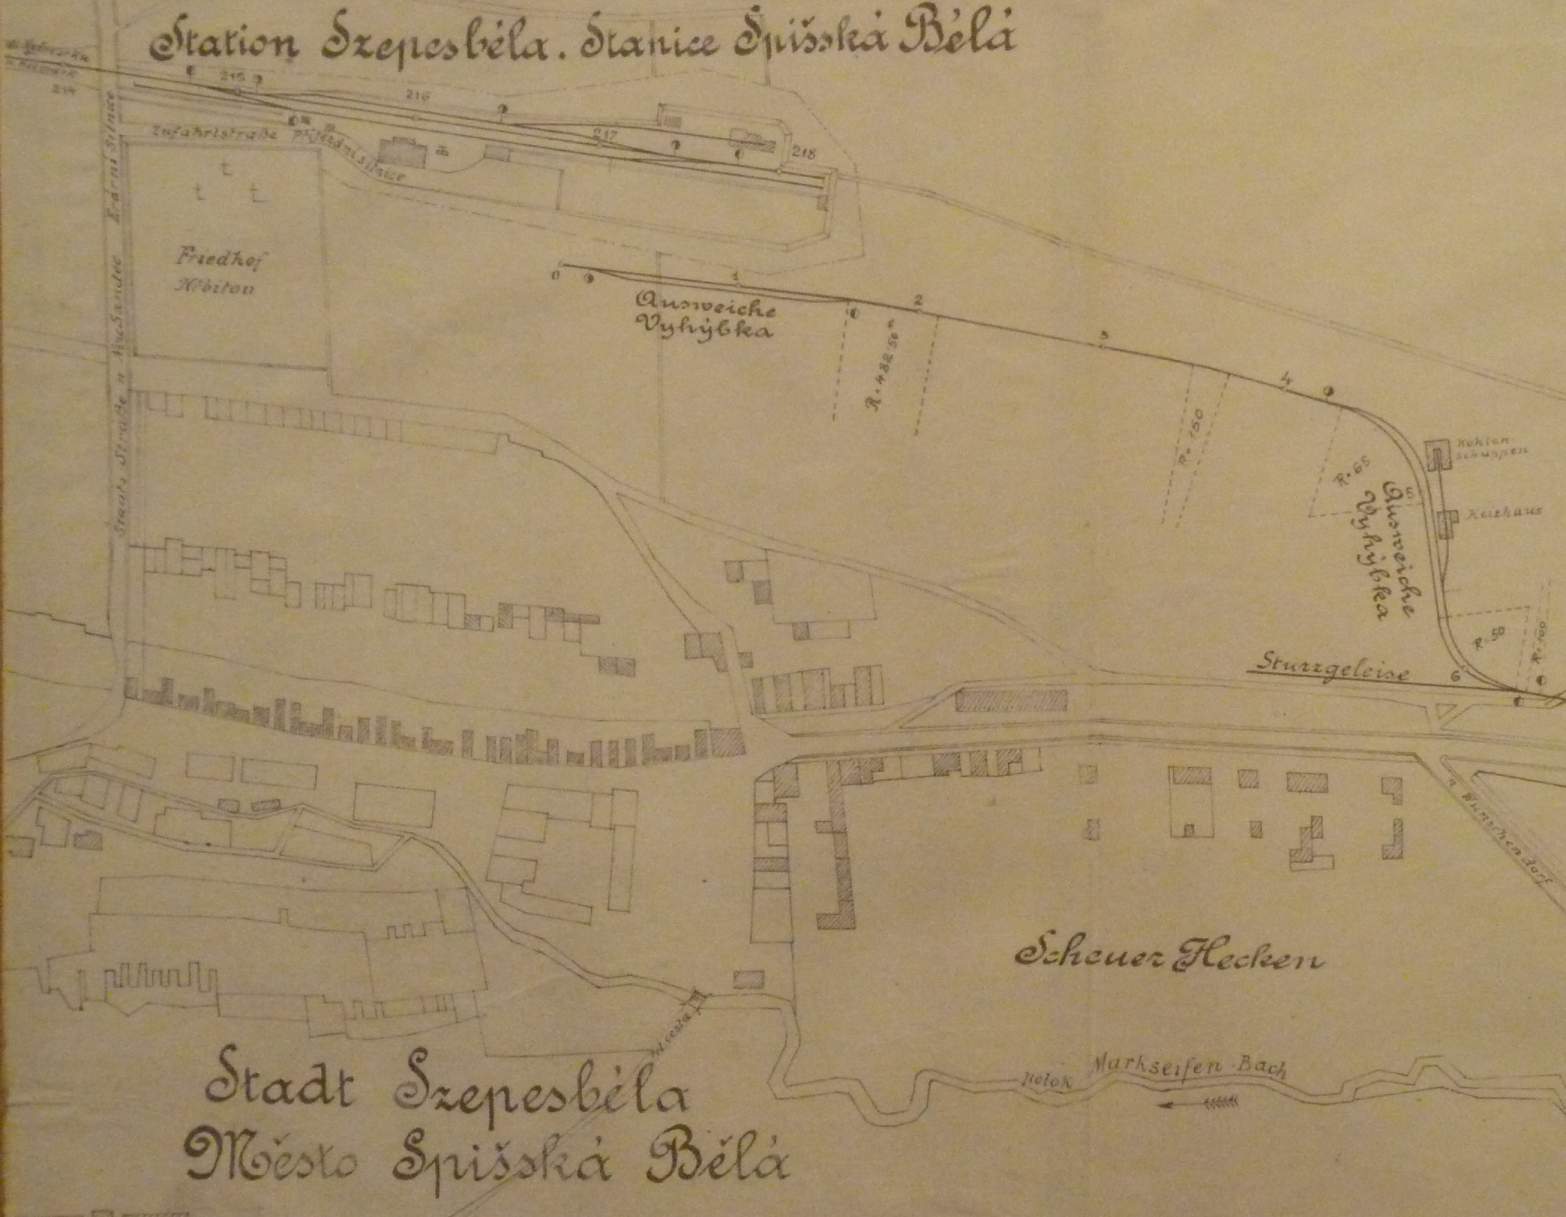 Station Szepesbéla. Stanice Spišská Bélá
214
215
216
217
218
Zufahrtstraße Příjezdní silnice
Erární Silnice
Staats Straße n. Alt Sandec
Friedhof
Hřbitov
0
1
2
3
4
5
6
Ausweiche
Vyhýbka
R=150
R=65
Kohlen
schuppen
Heizhaus
Ausweiche
Vyhýbka
R=50
R=100
Sturzgeleise
n. Wunschendorf
Scheuer Hecken
Potok Markseifen-Bach
cesta
Stadt Szepesbéla
Město Spišská Bělá